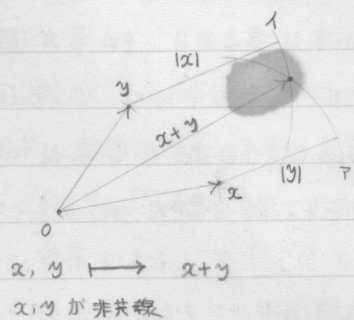 イ
|x|
y
x+y
|y|
ア
x
O
x, y ⟼ x+y
x, y が 非共線